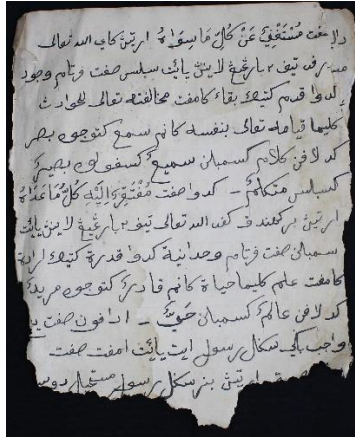 صفت مُسْتَغْنِيٌ عَنْ كُلِّ مَاسِوَاهُ ارتين كاي الله تعالى
تيف ٢ بارغيغ لاينن يائت سبلس صفت فرتام وجود
كدوا قدم كتيك بقاء كامفت مخالفته تعالى للحوادث
كليما قيامه تعالى بنفسه كانم سمع كتوجوه بصر
كدلافن كلام كسمبلن سميعٌ كسفوله بصيرٌ
كسبلس متكلمٌ - كدوا صفت مُفْتَقِرٌ اِلَيْهِ كُلُّ مَاعَدَاهُ
ارتين بركهندق كفد الله تعالى تيف ٢ بارغيغ لاينن يائت
سمبلن صفت فرتام وحدانية كدوا قدرة كتيك ارادة
كامفت علم كليما حياة كانم قادرٌ كتوجوه مريدٌ
كدلافن عالمٌ كسمبلن حَيٌّ - ادافون صفت يغ
واجب باكي سكل رسول ايت يائت امفت صفت
ارتين بنر سكل رسول مستحيل